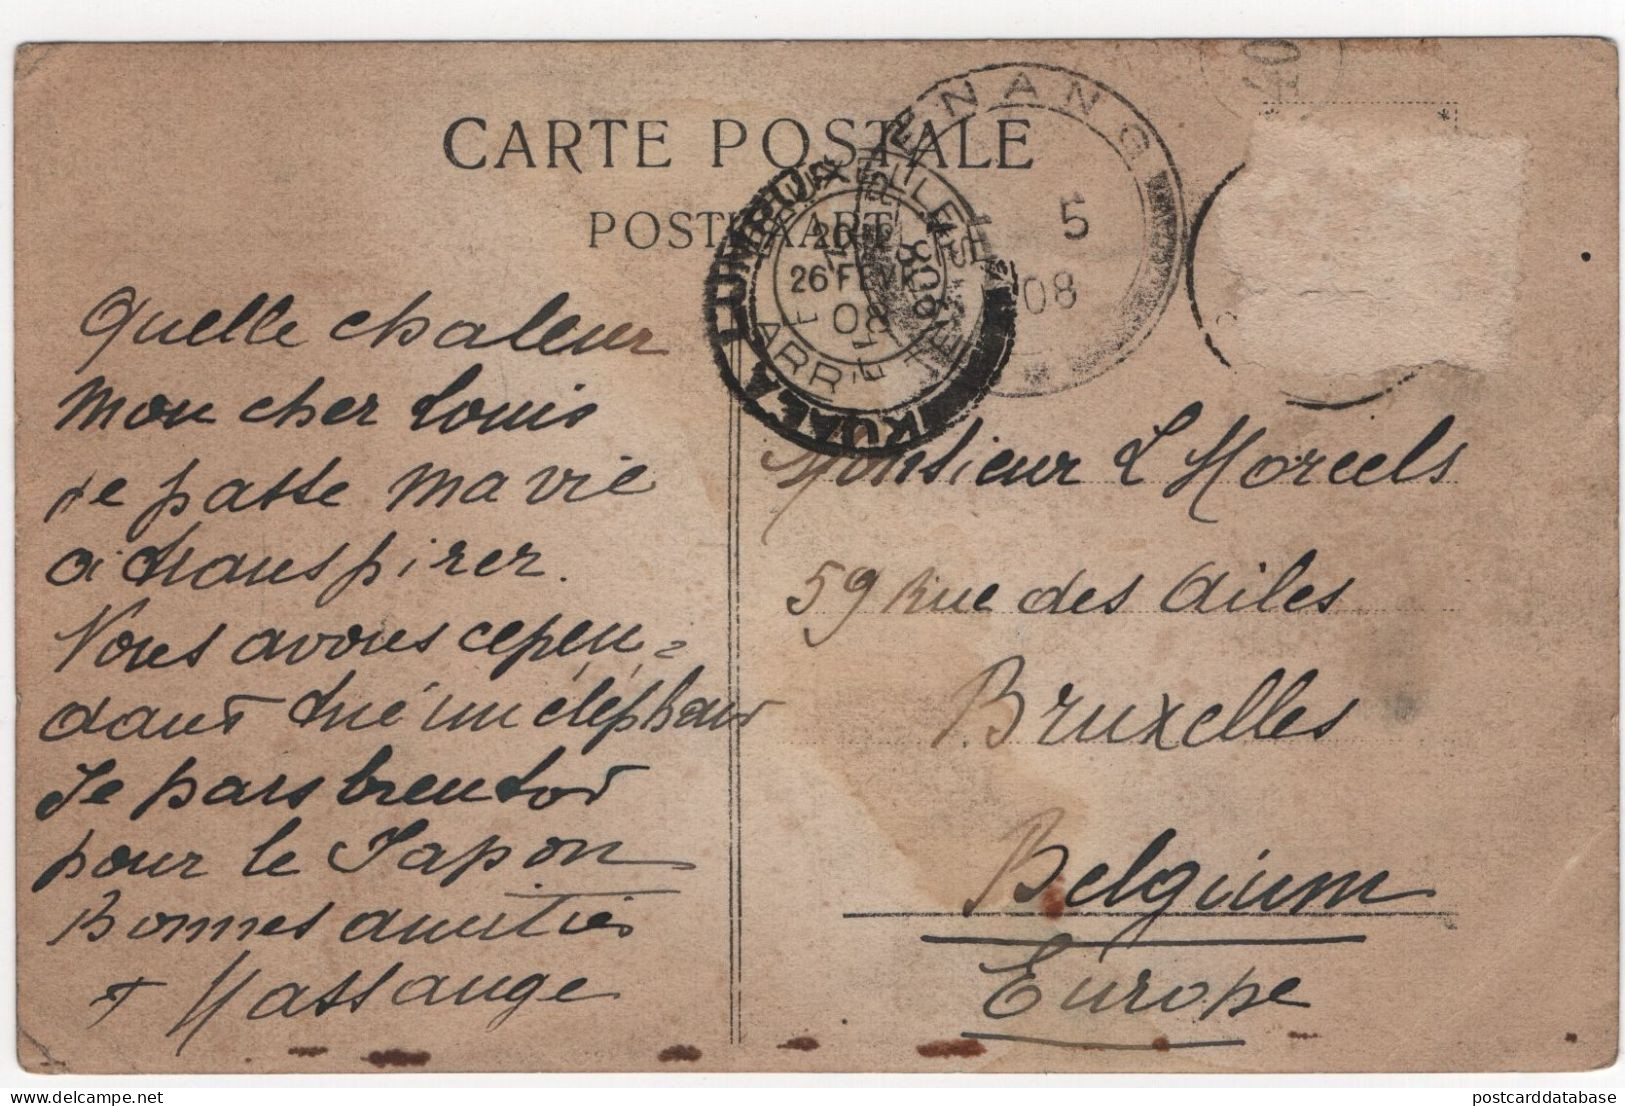 CARTE POSTALE
POSTKAART
PENANG
5
08
KUALA LUMPUR
BRUXELLES
26 FEVR
08
ARR
Quelle chaleur
Mon cher Louis
Je passe ma vie
à transpirer.
Nous avons cepen=
dant tué un éléphant
Je pars bientot
pour le Japon
Bonnes amitiés
Massange
Monsieur L Morcels
59 Rue des Ailes
Bruxelles
Belgium
Europe
postcarddatabase